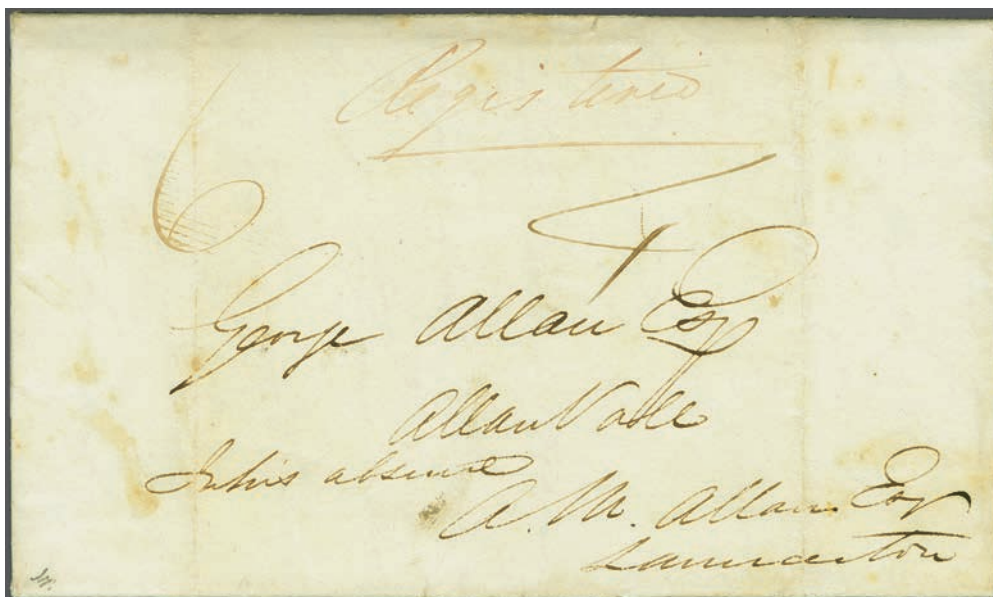 Registered
6
4
George Allan Esq
Allan Vale
In his absence
A. M. Allan Esq
Launceston